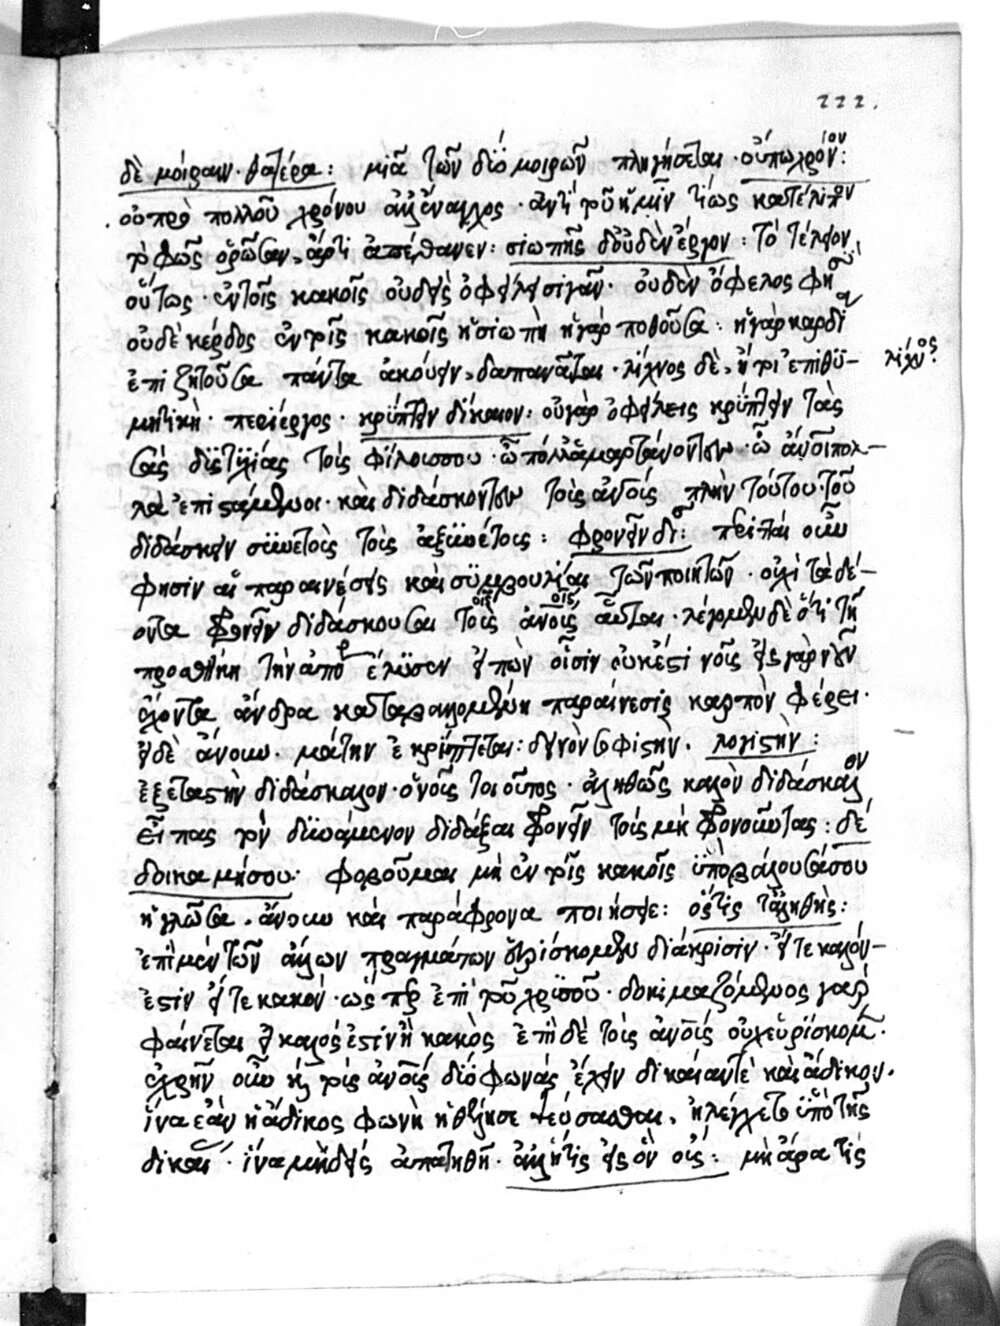 222.
δὲ μοίραιν θατέρα: μιᾶ τῶν δύο μοιρῶν πληγήσεται· οὔπω χρόνον:
οὐ πρὸ πολλοῦ χρόνου ἀλλ' ἔναγχος· ἀντὶ τοῦ ἡμῖν τέως κατέλιπον
τὸ φῶς ὁρῶσαν, ἄρτι ἀπέθανεν: σιωπῆς δ' οὐδὲν ἔργον: τὸ τέλειον
οὕτως· ἐν τοῖς κακοῖς οὐδεὶς ὀφείλει σιγᾶν· οὐδὲν ὄφελος φησὶ
οὐδὲ κέρδος ἐν τοῖς κακοῖς ἡ σιωπὴ ἡ γὰρ ποθοῦσα: ἡ γὰρ καρδία
ἐπιζητοῦσα πάντα ἀκούειν, δαπανᾶται· λίχνος δὲ, ἤτοι ἐπιθυ-
λίχνος:
μητικὴ· περίεργος· κρύπτειν δίκαιον: οὐ γὰρ ὀφείλεις κρύπτειν τὰς
σὰς δυστυχίας τοῖς φίλοις σου· ὦ πόλλ' ἁμαρτάνοντες· ὦ ἄνοι πολ-
λὰ ἐπιστάμενοι· καὶ διδάσκοντες τοῖς ἀνοις πλὴν τούτου· τοῦ
διδάσκειν συνετοὺς τοὺς ἀξυνέτους: φρονεῖν δι: περιτταὶ οὖν
φησὶν αἱ παραινέσεις καὶ συμβουλίαι τῶν ποιητῶν· οὐχὶ τὰ δέ-
οντα φρονεῖν διδάσκουσαι τοὺς ἄνους αὗται· λέγομεν δὲ ὅτι τῇ
προσθήκη τὴν ἀπορ ἔλυσεν εἰπὼν οἷσιν οὐκ ἔστι νοῦς εἰς γὰρ νοῦν
ἔχοντα ἄνδρα καταβαλλομένη παραίνεσις καρπὸν φέρει·
εἰ δὲ ἄνουν· μάτην ἐκρίπτεται: δεινὸν σοφιστὴν· λογιστὴν:
ἐξεταστὴν διδάσκαλον· ὁ νοῦς τοιοῦτος· ἀληθῶς καλὸν διδάσκαλον
εἶπας τὸν δυνάμενον διδάξαι φρονεῖν τοὺς μὴ φρονοῦντας: δέ
δοικα μή σου· φοβοῦμαι μὴ ἐν τοῖς κακοῖς ὑπερβάλουσά σου
ἡ γλῶσσα, ἄνουν καὶ παράφρονα ποιήσῃ σε: ὅστις τ' ἀληθὴς:
ἐπὶ μὲν τῶν ἄλλων πραγμάτων εὑρίσκομεν διάκρισιν· εἴτε καλόν-
ἐστὶν εἴτε κακὸν· ὡς περ ἐπὶ τοῦ χρυσοῦ· δοκιμαζόμενος γὰρ
φαίνεται εἰ καλός ἐστὶν ἢ κακὸς ἐπὶ δὲ τοῖς ἀνοις οὐχ εὑρίσκομεν·
ἐχρῆν οὖν καὶ τοὺς ἄνους δύο φωνὰς ἔχειν δικαίαν τὲ καὶ ἄδικον.
ἵνα ἐὰν ἡ ἄδικος φωνὴ ἠθέλησε ψεύσασθαι, ἠλέγχετο ὑπὸ τῆς
δικαί· ἵνα μηδεὶς ἀπατηθῇ· ἀλλ' ἤ τις εἰς σὸν οὖς: μὴ ἄρα τὶς